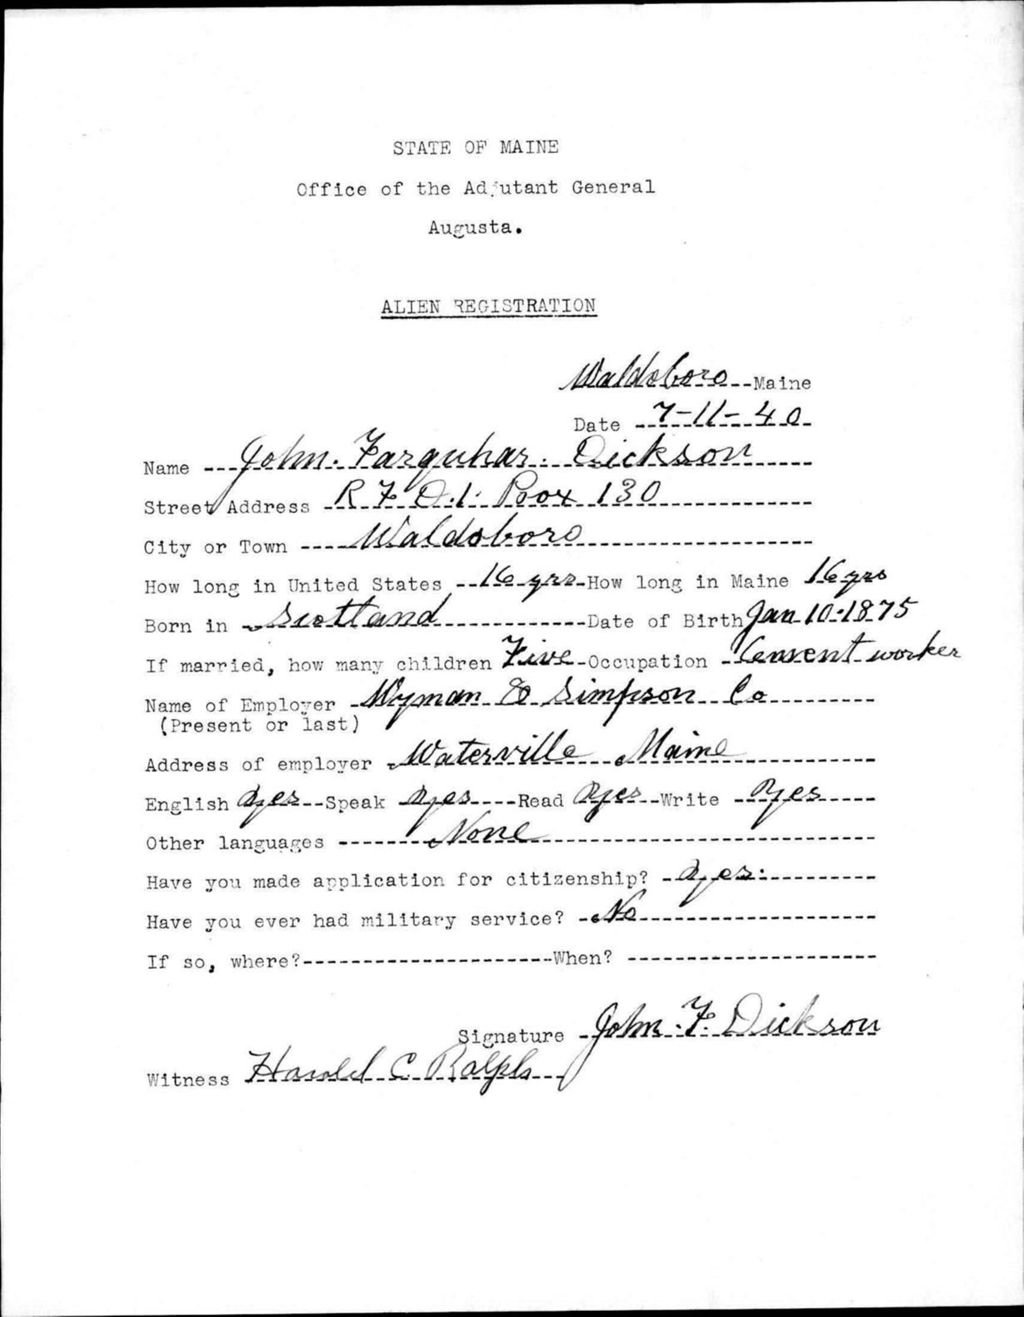 STATE OF MAINE
Office of the Adjutant General
Augusta.
ALIEN REGISTRATION
Waldoboro--Maine
Date 7-11-40
Name John. Farquhar. Dickson
Street Address R F D. 1. Box 130
City or Town Waldoboro
How long in United States 16 yrs-How long in Maine 16 yrs
Born in Scotland Date of Birth Jan 10-1875
If married, how many children Five-Occupation Cement worker
Name of Employer Wyman & Simpson Co
(Present or last)
Address of employer Waterville Maine
English Yes--Speak Yes----Read Yes--Write Yes
Other languages None
Have you made application for citizenship? Yes.
Have you ever had military service? No
If so, where?---------------------When? ---------------------
Signature John. F. Dickson
Witness Harold C. Ralph